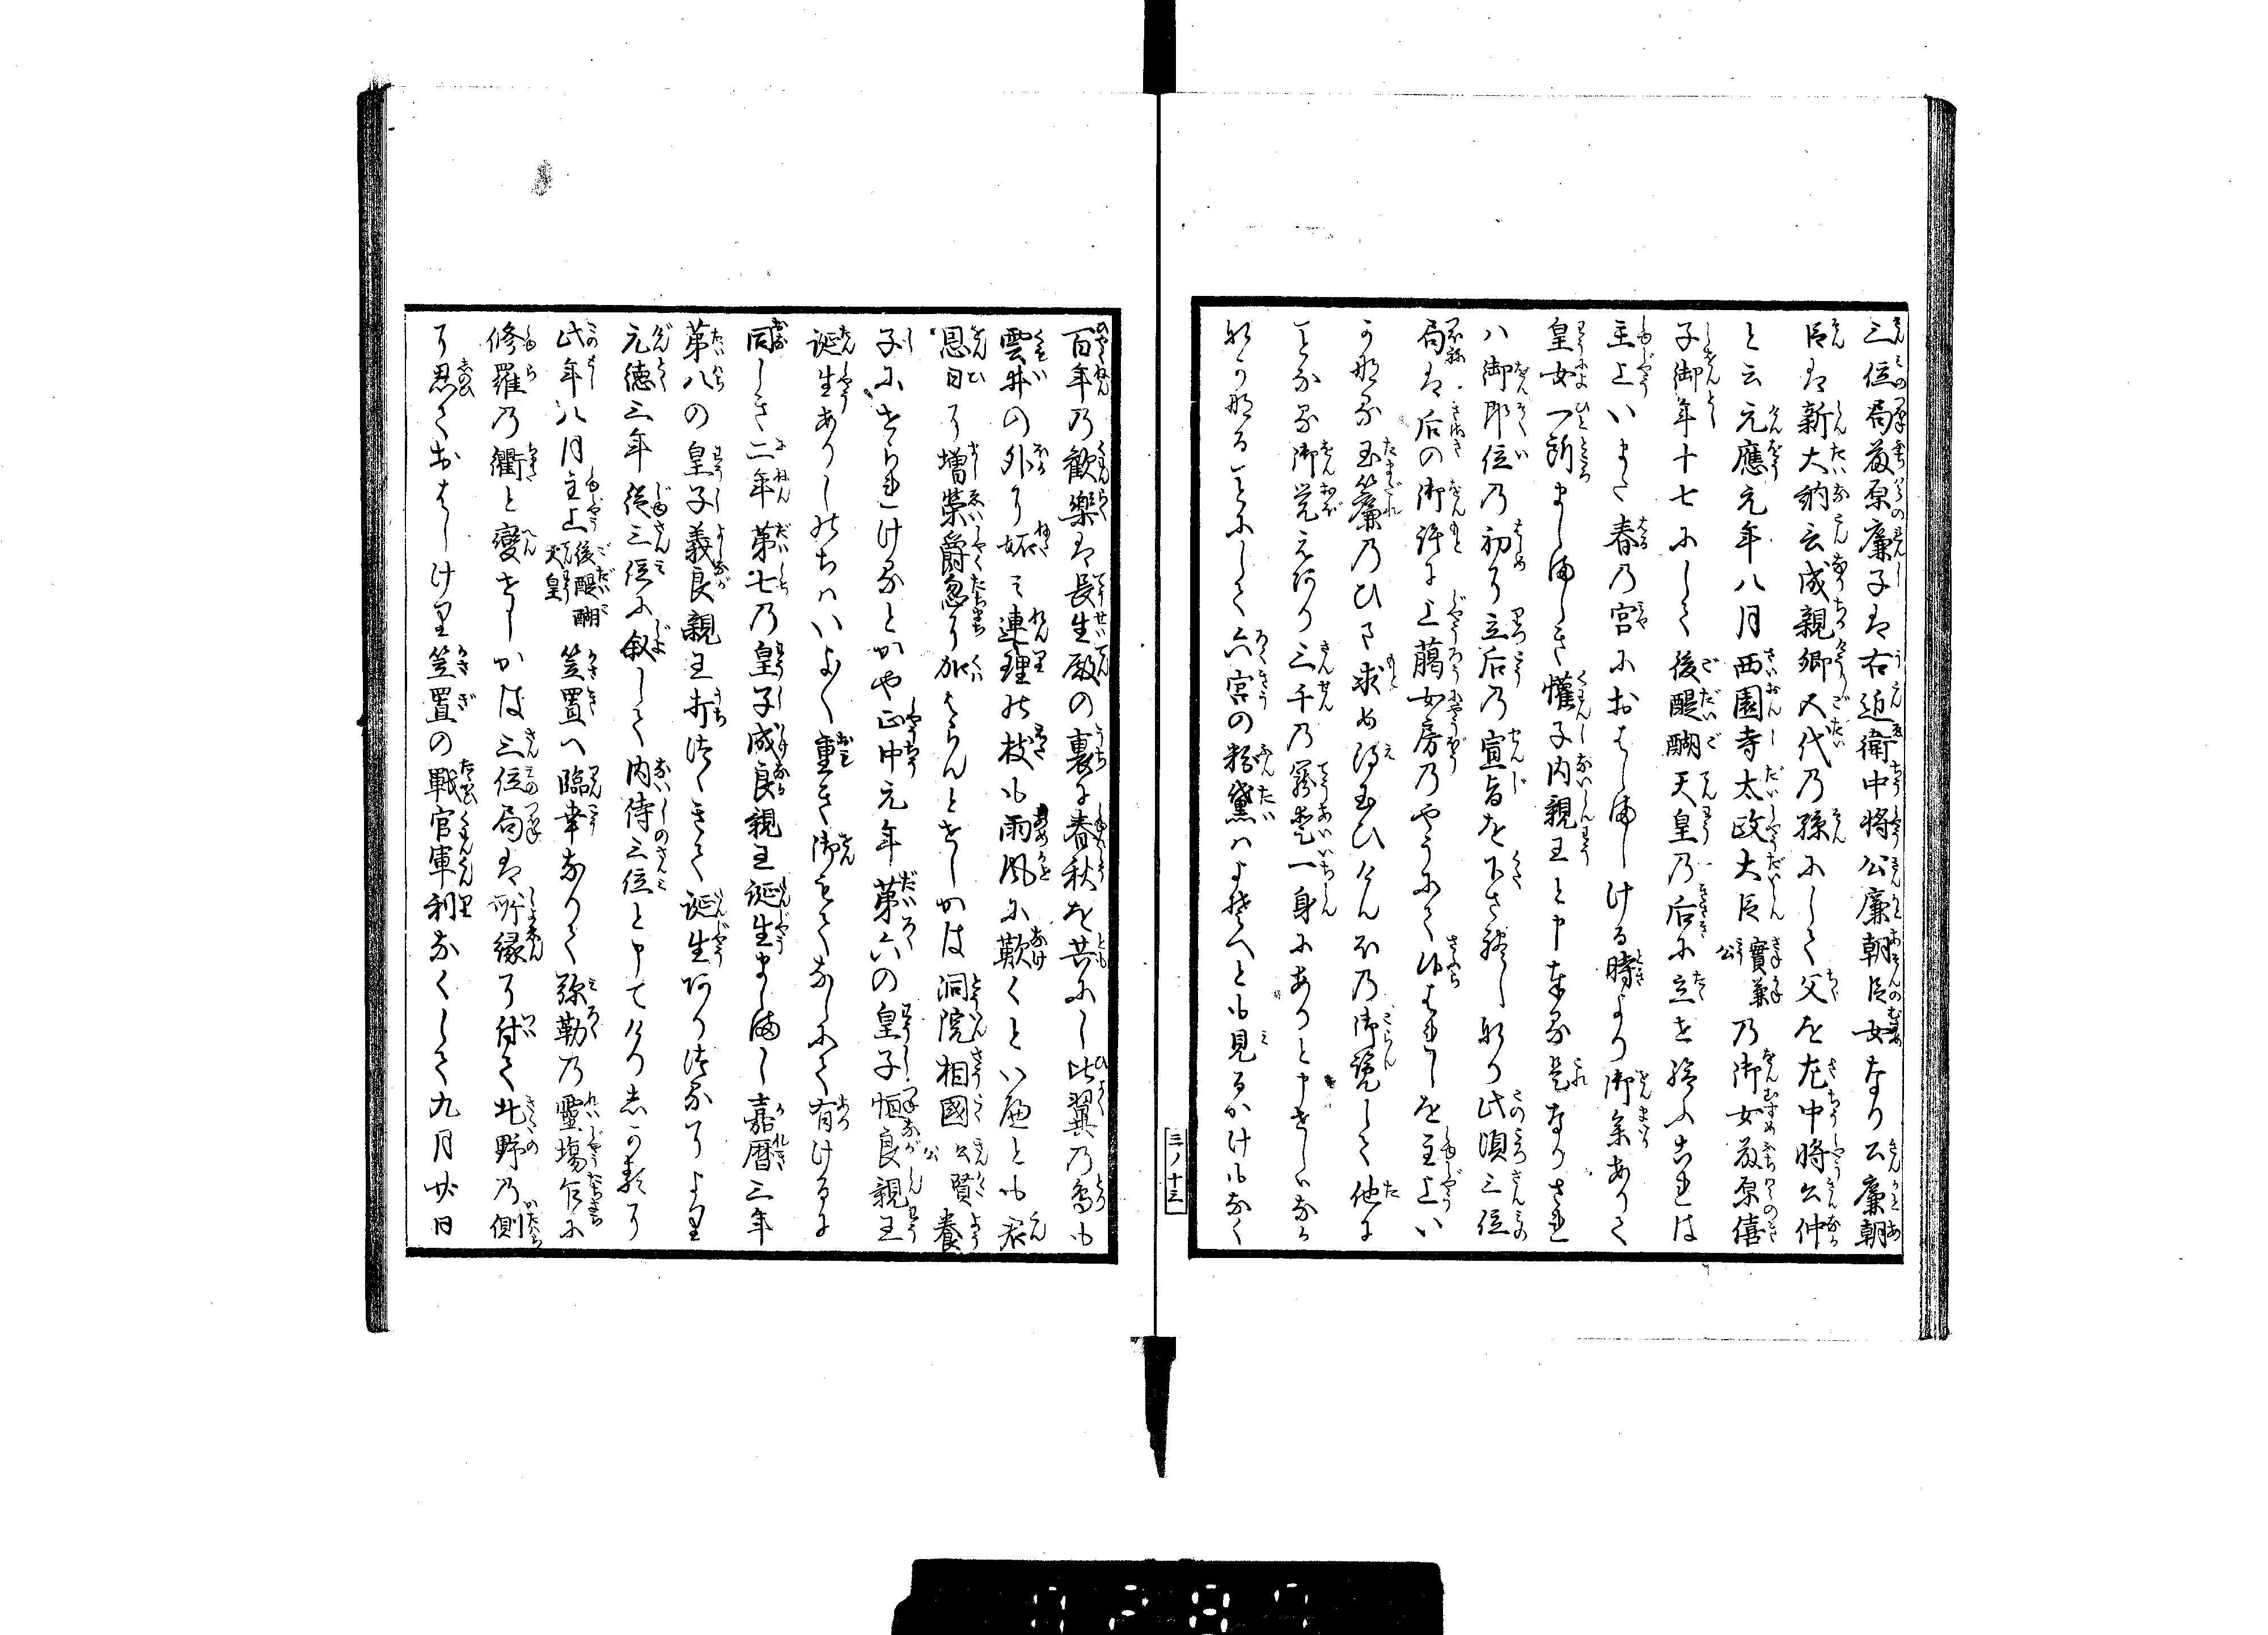 三位局藤原廉子は右近衛中将公廉朝臣女なり公廉朝
臣は新大納言成親卿五代の孫にして父を左中将公仲
と云元應元年八月西園寺太政大臣實兼公の御女藤原僖
子御年十七にして後醍醐天皇の后に立せ給ふこれは
主上いまた春の宮におはしましける時より御参ありて
皇女一所ましましき懽子内親王と申奉る是なりされ
ハ御即位の初より立后の宣旨を下され此頃三位
局は后の御許に上臈女房のやうにて候はれしを主上い
玉簾のひま求め得玉ひけん御覧して他に
御覚えありて三千の寵愛一身にありと申
ことにして六宮の粉黛ハよそへとも見るかけもなく
百年の歓樂は長生殿の裏に春秋を共にし比翼の鳥も
雲井の外に妬み連理の枝も雨風に歎くといへとも君
恩日に増榮爵忽に加はらんとせしかは洞院相國公賢公養
子にせられけるとかや正中元年第六の皇子恒良親王
誕生ありしのちハいよ〱重き御もてなしにて有けるに
同しき二年第七の皇子成良親王誕生ましまし嘉暦三年
第八の皇子義良親王打つゝきて誕生ありつるにより
元徳三年従三位に叙して内侍三位と申てけり
此年八月主上後醍醐天皇笠置へ臨幸なりて弥勒の靈場乍に
修羅の衢と變せしかは三位局は所縁に付て北野の側
に忍ておはしけり笠置の戦官軍利なくして九月廿日
三ノ十三